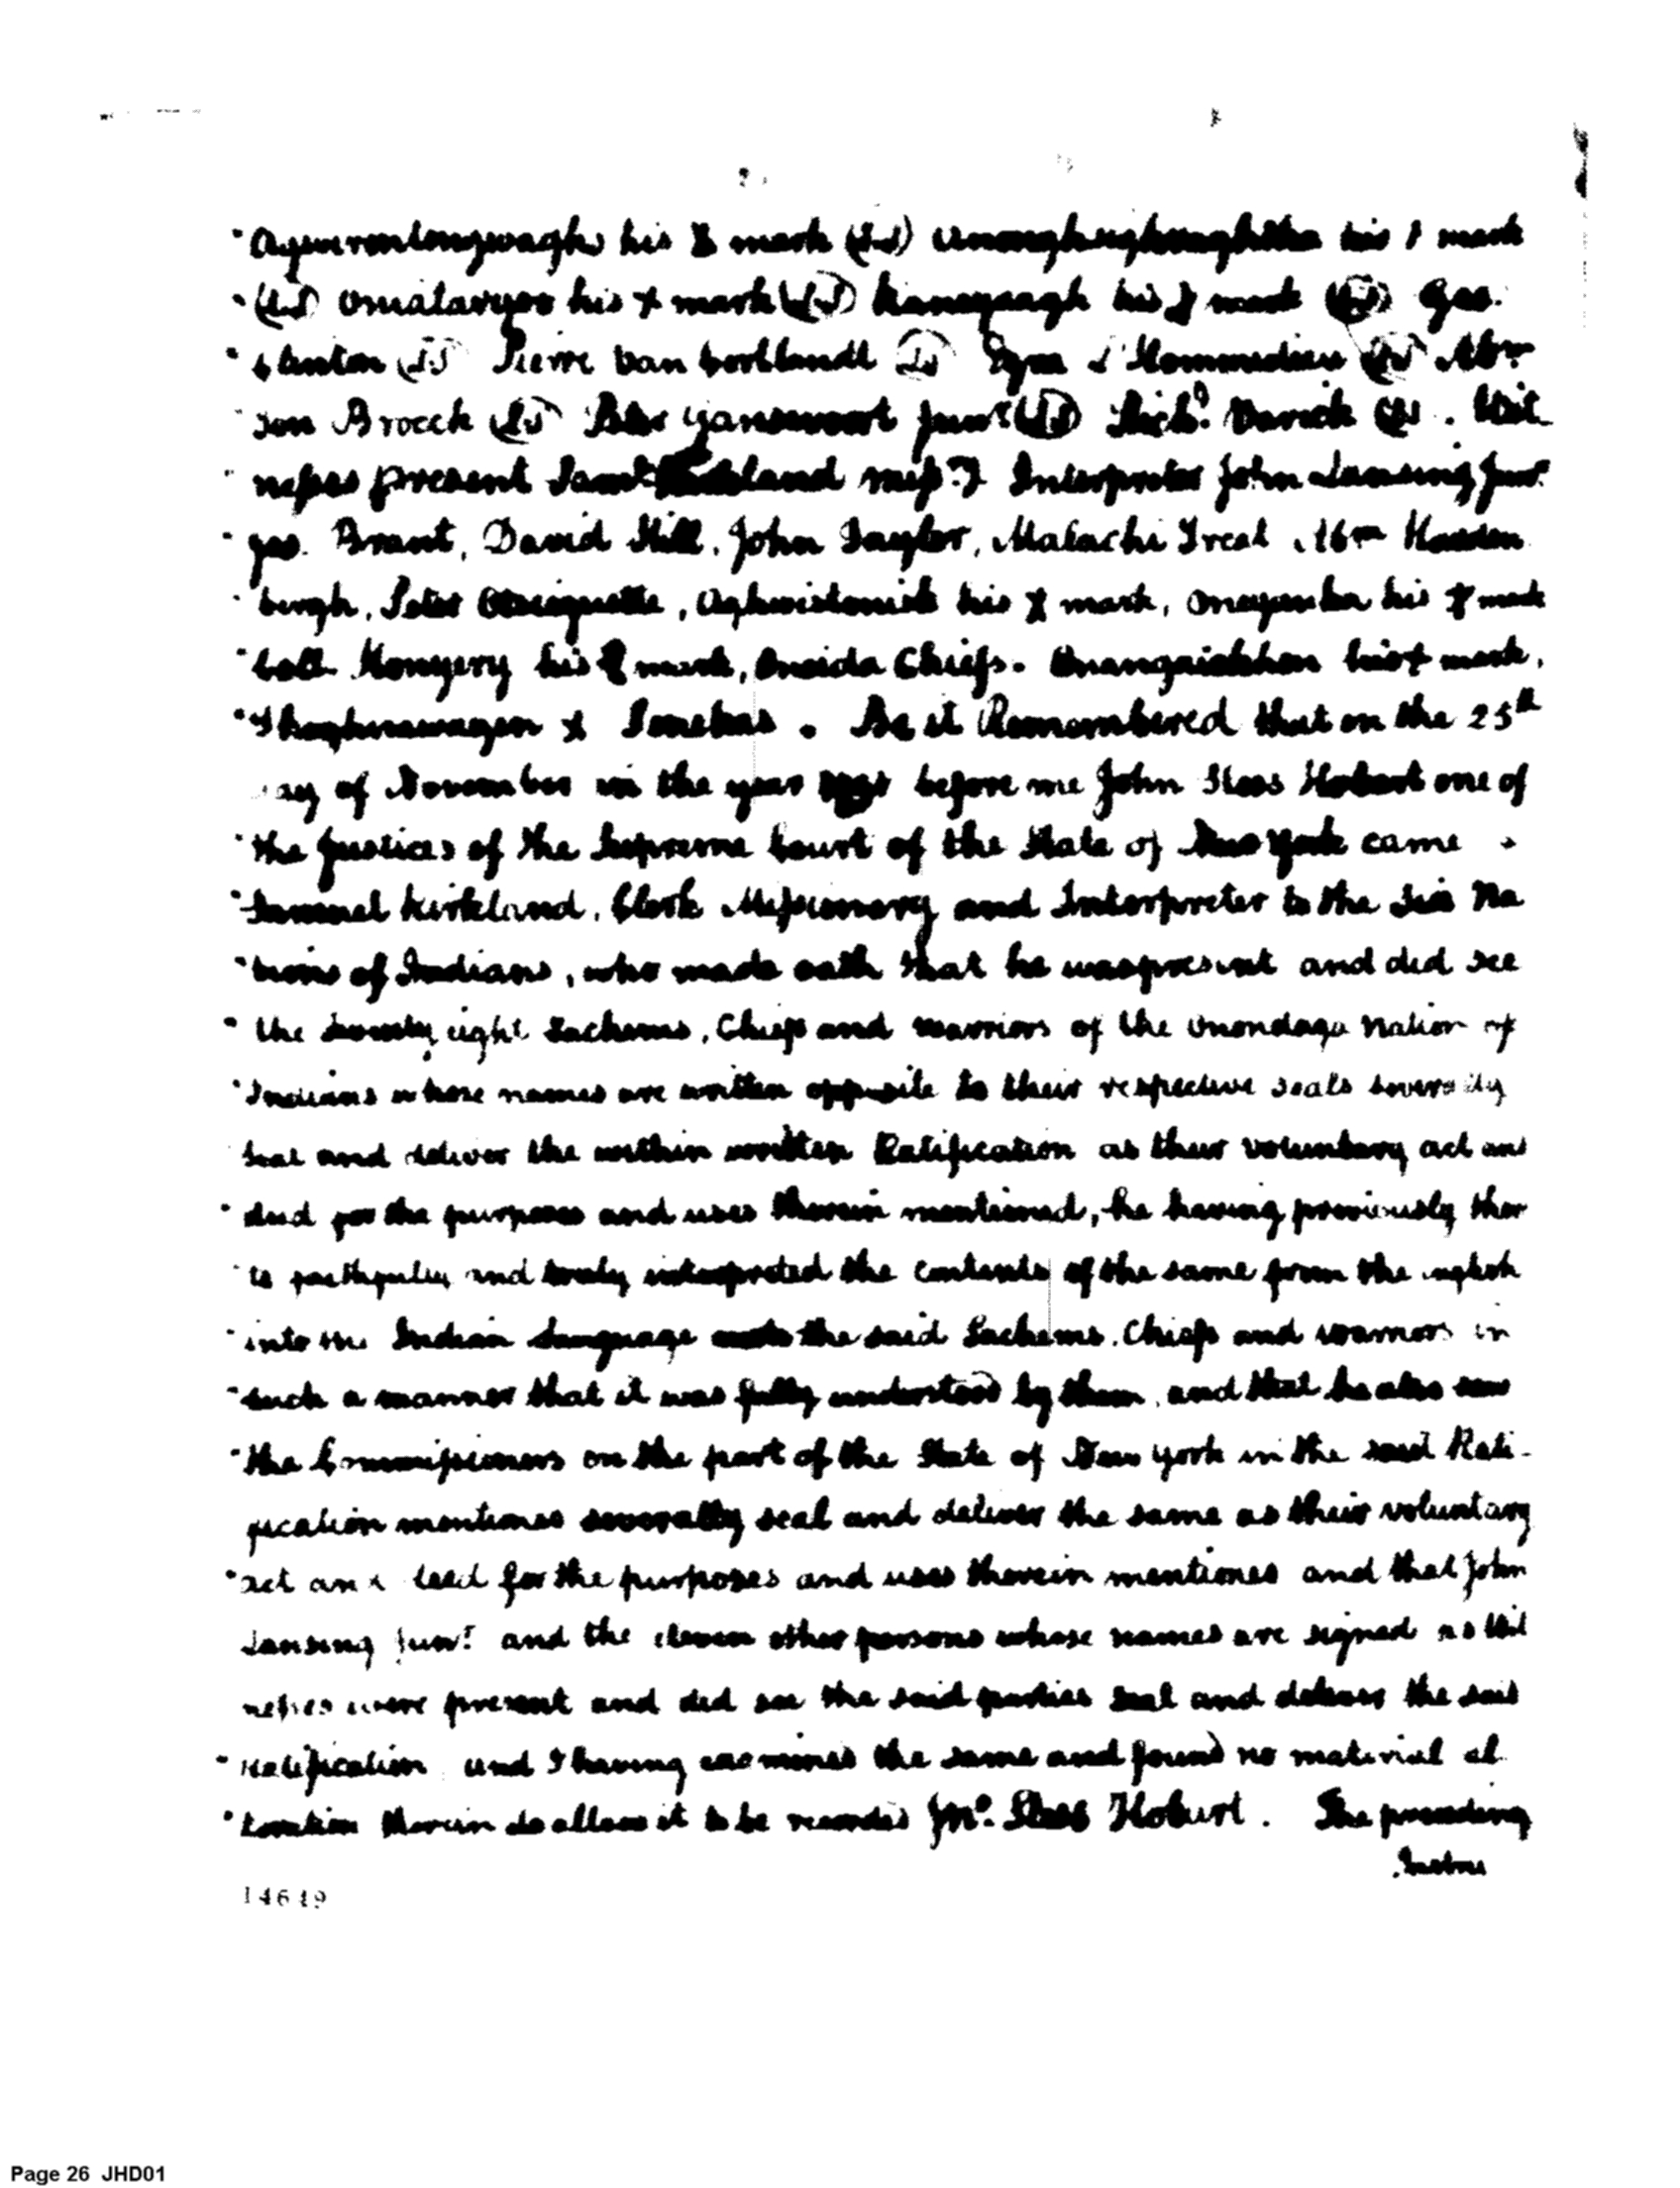 "his mark (LS) his mark
"(LS) his x mark (LS) Kanaqueagh his mark (LS) Geo.
"Clinton (LS) Pierre Van Cortlandt (LS) Ezra L'Hommedieu (LS) Abm
"Ten Broeck (LS) Peter Gansevoort Junr (LS) Richd. Varick (LS). Wit
"nesses present Saml Kirkland missy. Interpreter John Lansing Junr.
"Jos. Brant, David Hill, John Taylor, Malachi Treat, Abm Harden
"bergh, Peter Otsiequette, his x mark, his mark
"Coll. Honyery his mark, Oneida Chiefs. his x mark,
"x Senekas. Be it Remembered that on the 25th
day of November in the year before me John Sloss Hobart one of
"the Justices of the Supreme Court of the State of New York came
"Samuel Kirkland, Clerk Missionary and Interpreter to the Six Na
"tions of Indians, who made oath that he was present and did see
"the twenty eight Sachems, Chiefs and Warriors of the Onondaga Nation of
"Indians whose names are written opposite to their respective seals severally
seal and deliver the within written Ratification as their voluntary act and
"deed for the purposes and uses therein mentioned, he having previously ther
"to faithfully and truly interpreted the contents of the same from the english
"into the Indian Language unto the said Sachems, Chiefs and warriors in
"such a manner that it was fully understood by them, and that he also saw
"the Commissioners on the part of the State of New York in the said Rati-
fication mentioned severally seal and deliver the same as their voluntary
"act and deed for the purposes and uses therein mentioned and that John
Lansing Junr. and the eleven other persons whose names are signed as Wit
nesses were present and did see the said parties seal and deliver the said
"Ratification and I having examined the same and found no material al
"teration therein do allow it to be recorded Jno. Sloss Hobart. The preceding
Instru
14649
Page 26 JHD01